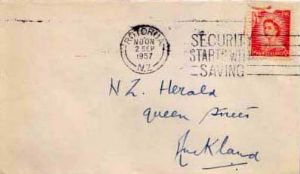 ROTORUA
NOON
2 SEP
1957
N.Z.
SECURIT
STARTS WIT
SAVING
N.Z. Herald
Queen Street
Auckland